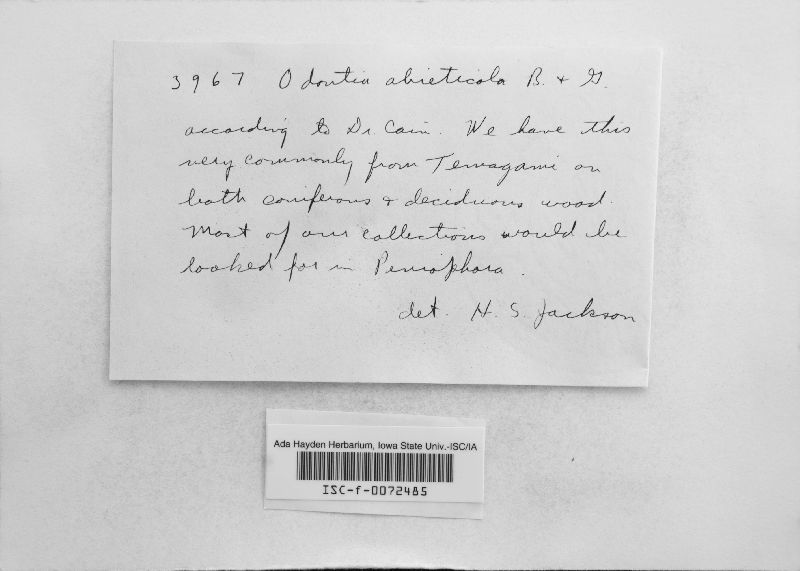 3967 Odontia abieticola B. + G.
according to Dr. Cain. We have this
very commonly from Temagami on
both coniferous + deciduous wood.
Most of our collections would be
looked for in Peniophora.
det. H. S. Jackson
Ada Hayden Herbarium, Iowa State Univ.-ISC/IA
ISC-f-0072485